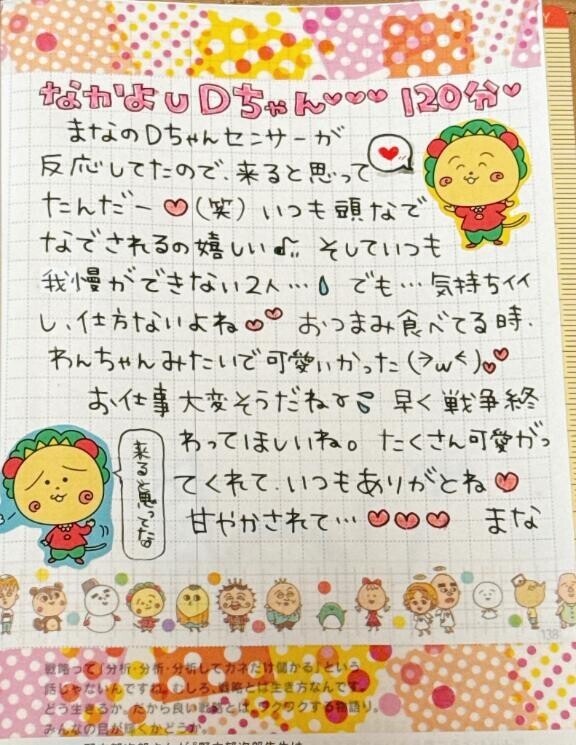 なかよしDちゃん♡♡♡ 120分♡
まなのDちゃんセンサーが
反応してたので、来ると思って
たんだー♡(笑) いつも頭なで
なでされるの嬉しい♫ そしていつも
我慢ができない2人… でも…気持ちイイ
し、仕方ないよね♡♡ おつまみ食べてる時、
わんちゃんみたいで可愛いかった(>ω<)♡♡
お仕事大変そうだね 早く戦争終
わってほしいね。たくさん可愛がっ
てくれて、いつもありがとね♡
甘やかされて…♡♡♡ まな
来ると思ってな
138
戦略って「分析・分析・分析してカネだけ儲かる」という
話じゃないんですね。むしろ、戦略とは生き方なんです。
どう生きるか。だから良い戦略とは、ワクワクする物語り。
みんなの目が輝くかどうか。